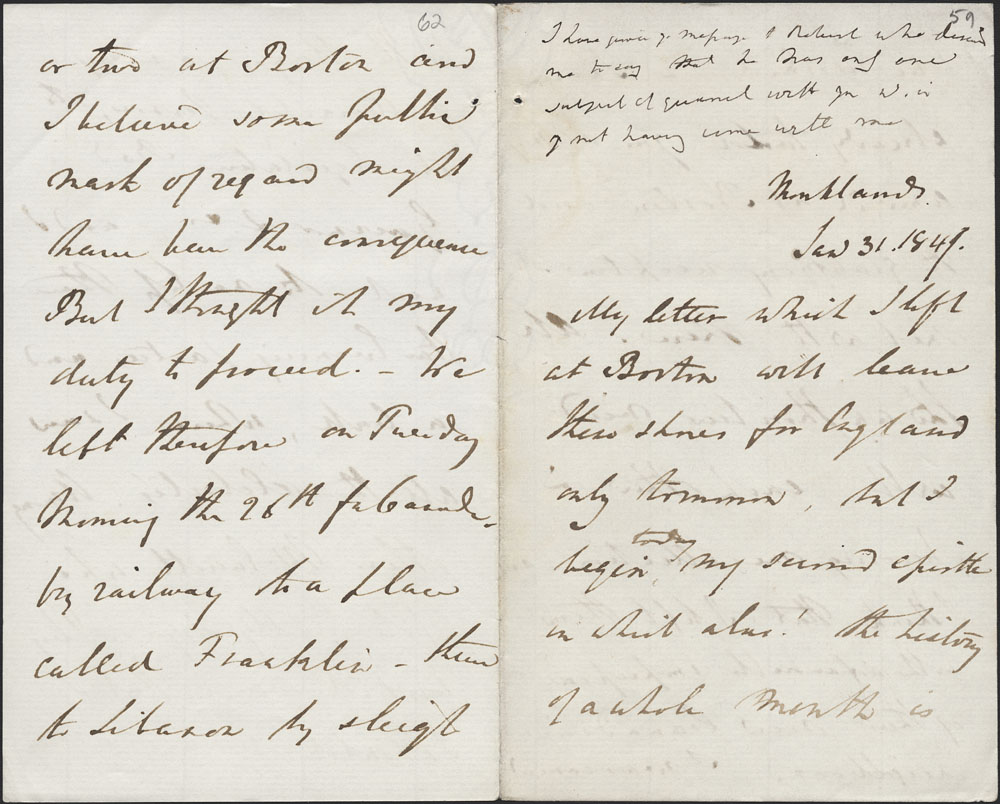 62
or two at Boston and
I believe some public
mark of regard might
have been the consequence
But I thought it my
duty to proceed. - We
left therefore on Tuesday
Morning the 26th for Canada -
by railway to a place
called Franklin - thence
to Lebanon by sleigh
59
I have given yr message to Robert who desires
me to say that he has only one
subject of quarrel with you w. is
yr not having come with me
Monklands.
Jan 31. 1847.
My letter which I left
at Boston will leave
these shores for England
only tomorrow, but I
today
begin, my second epistle
in which alas! the history
of a whole month is